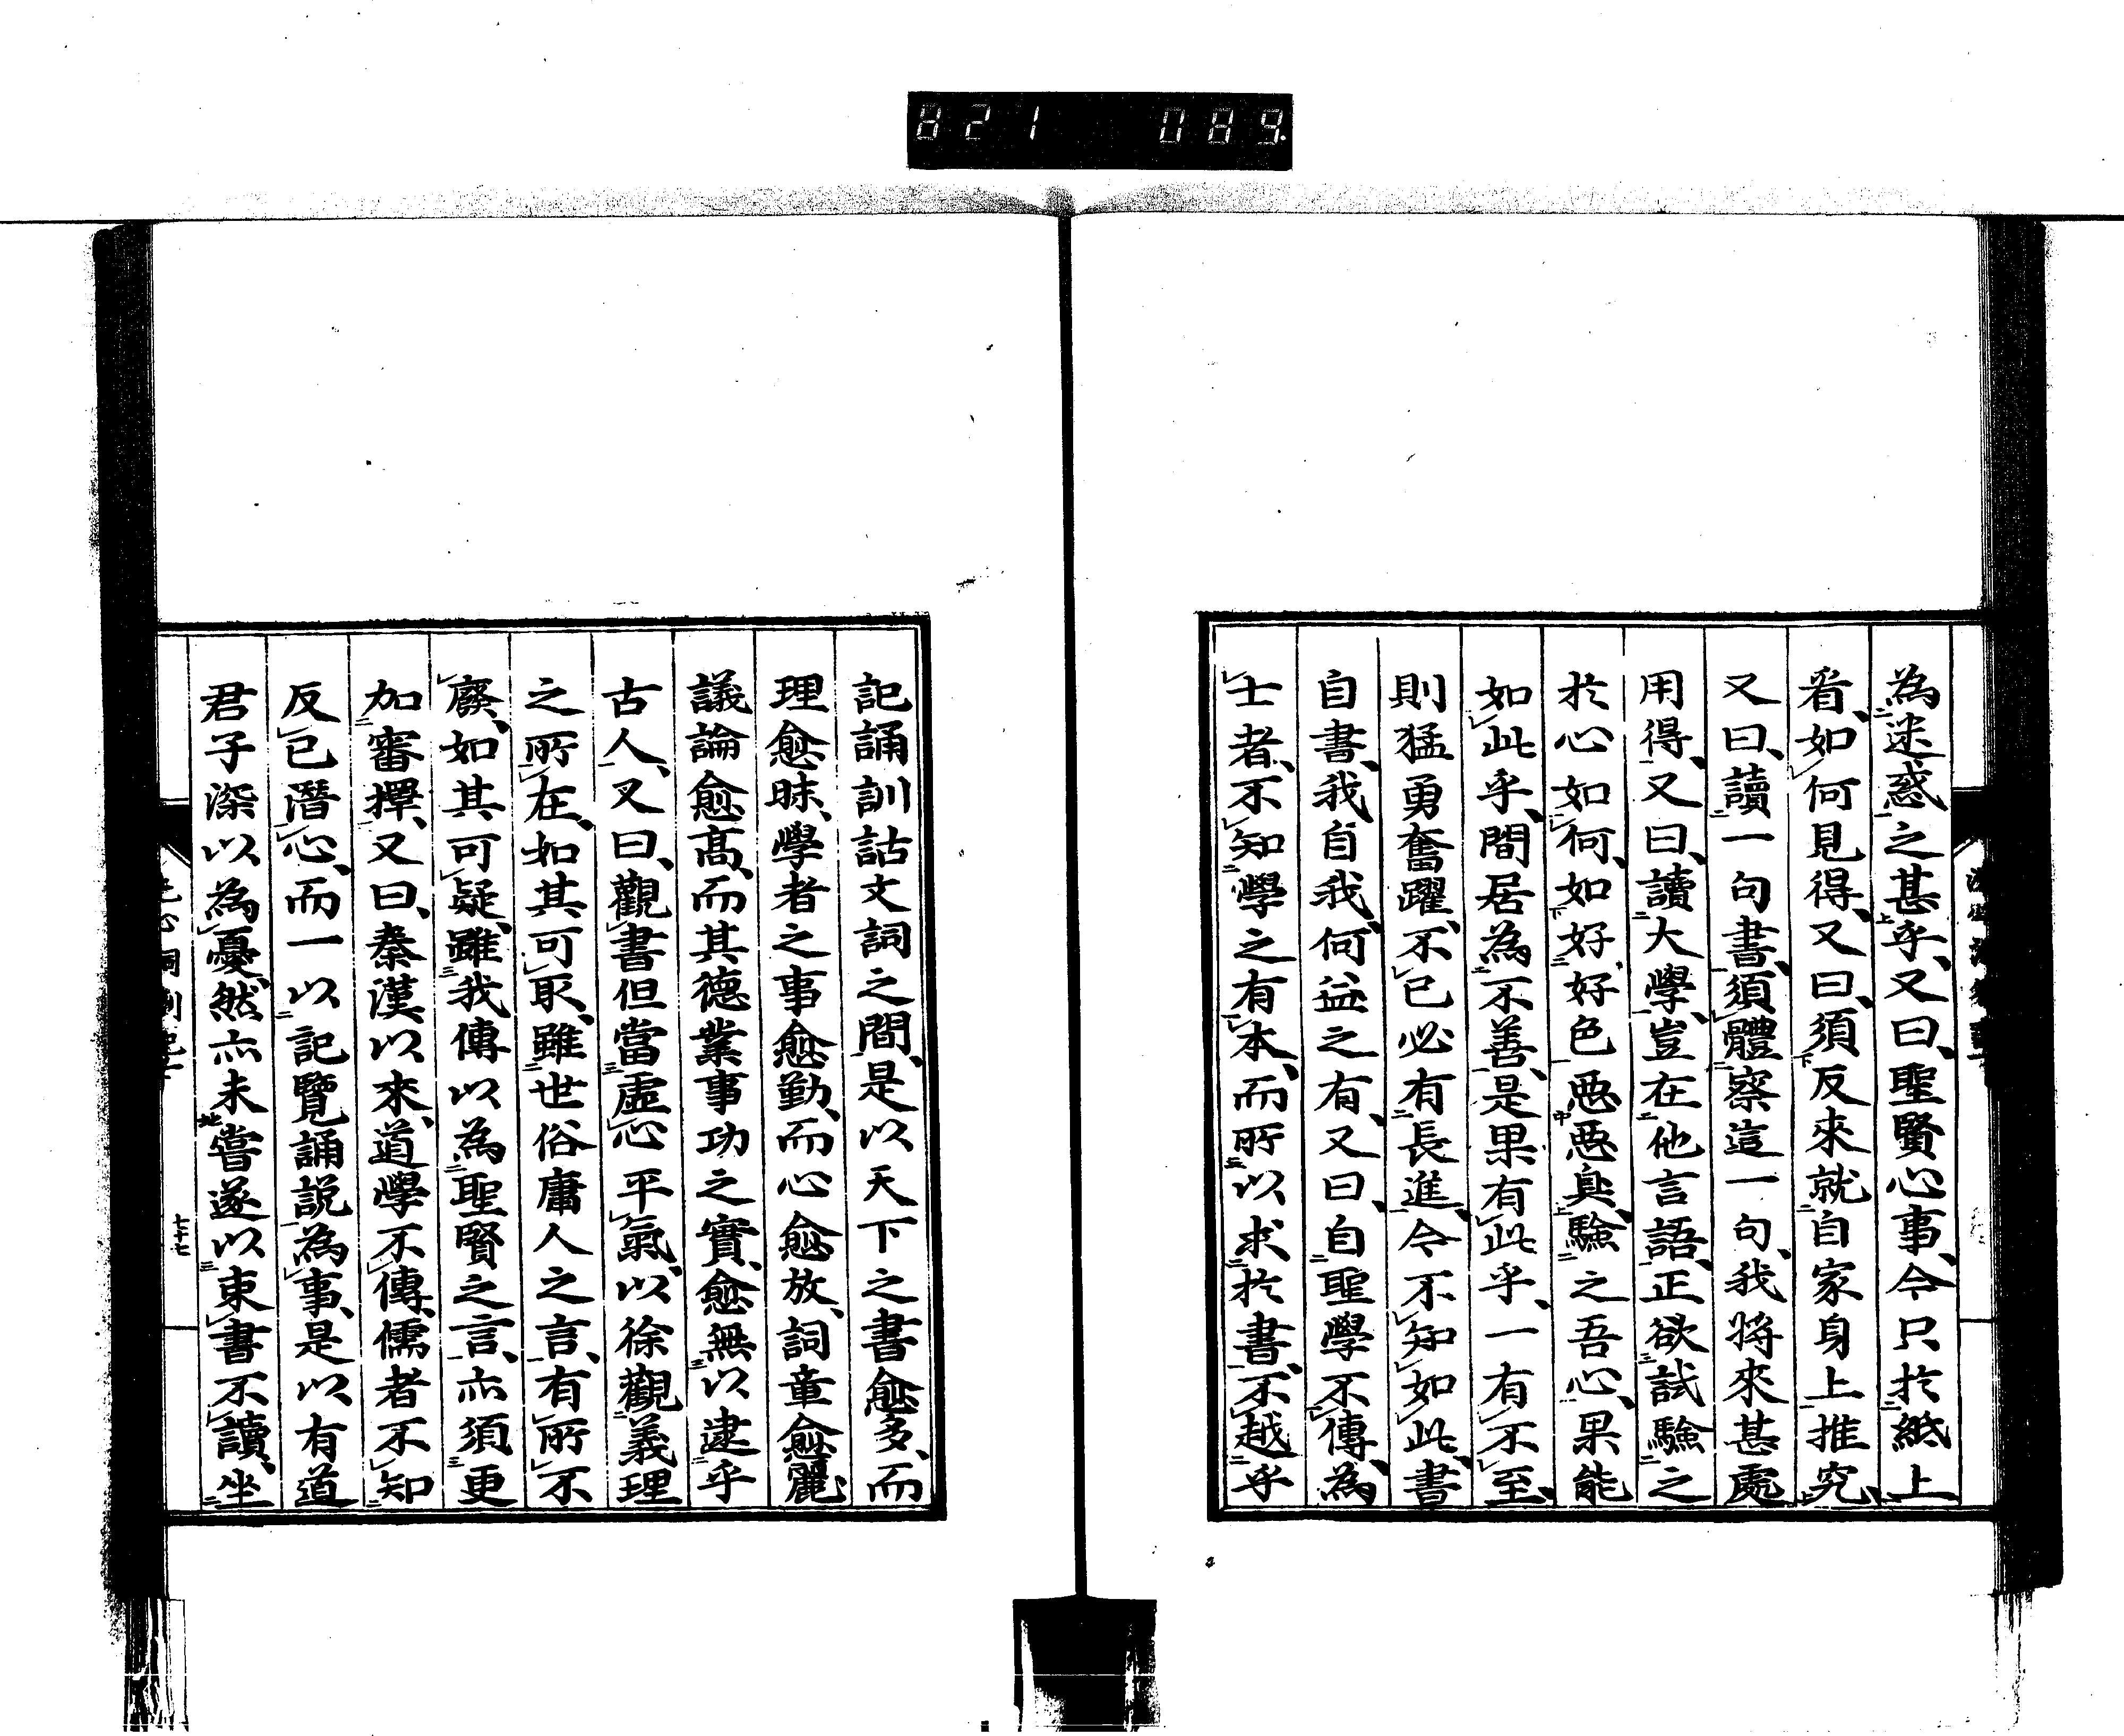 821 089
為迷惑之甚乎、又曰、聖賢心事、今只於紙上
看、如何見得、又曰、須反來就自家身上推究、
又曰、讀一句書、須體察這一句、我將來甚處
用得、又曰、讀大學、豈在他言語、正欲試驗之
於心如何、如好好色惡惡臭、驗之吾心、果能
如此乎、間居為不善、是果有此乎、一有不至、
則猛勇奮躍、不已必有長進、今不知如此、書
自書、我自我、何益之有、又曰、自聖學不傳、為
士者、不知學之有本、而所以求於書、不越乎
記誦訓詁文詞之間、是以天下之書愈多、而
理愈昧、學者之事愈勤、而心愈放、詞章愈麗、
議論愈高、而其德業事功之實、愈無以逮乎
古人、又曰、觀書但當虛心平氣、以徐觀義理
之所在、如其可取、雖世俗庸人之言、有所不
廢、如其可疑、雖我傳以為聖賢之言、亦須更
加審擇、又曰、秦漢以來、道學不傳、儒者不知
反已潛心、而一以記覽誦説為事、是以有道
君子深以為憂、然亦未嘗遂以束書不讀、坐
七十七